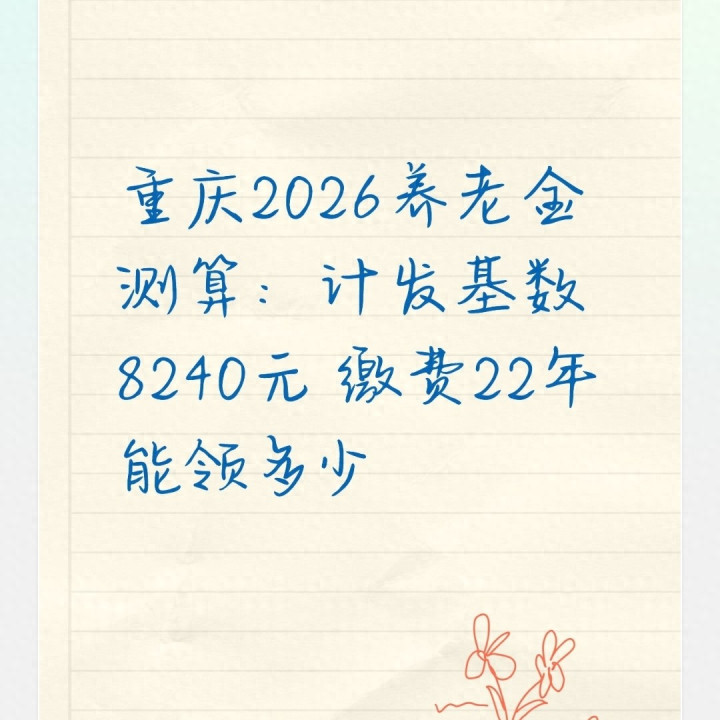 重庆2026养老金
测算：计发基数
8240元 缴费22年
能领多少